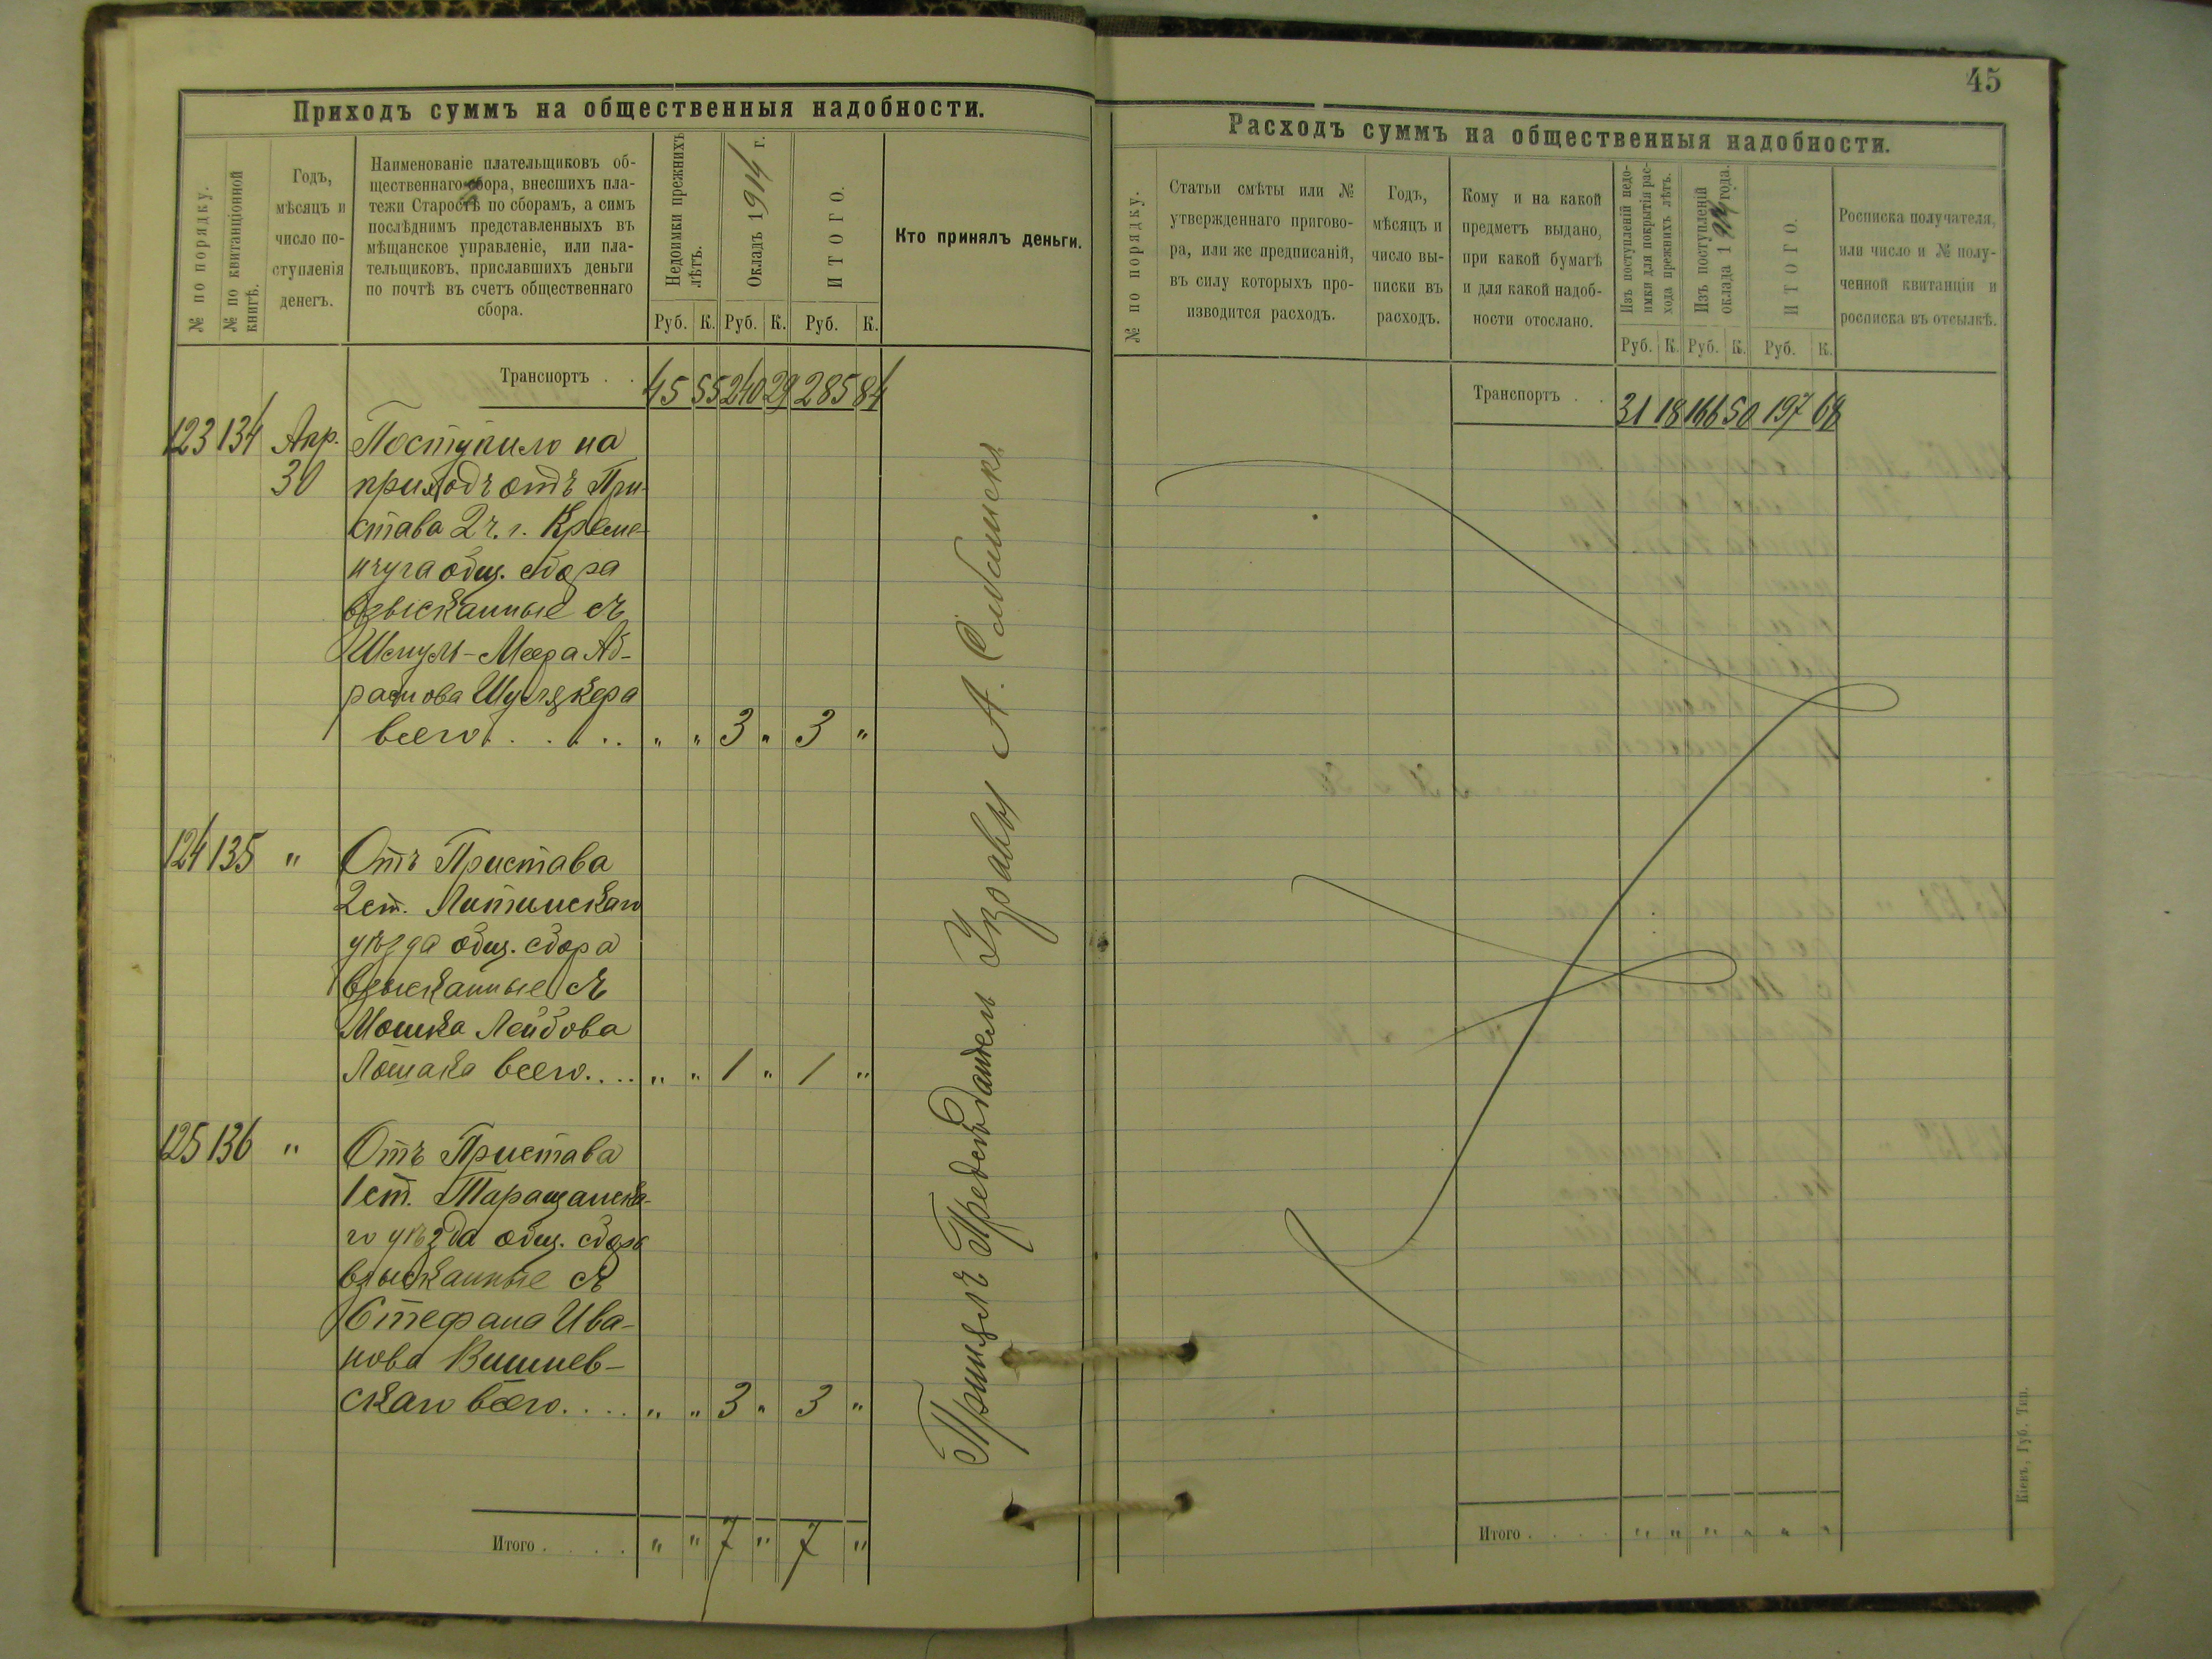 Приходъ суммъ на общественныя надобности.
№ по порядку.
№ по квитанціонной
книгѣ.
Годъ,
мѣсяцъ и
число по-
ступленія
денегъ.
Наименованіе плательщиковъ об-
щественнаго сбора, внесшихъ пла-
тежи Старостѣ по сборамъ, а симъ
послѣднимъ представленныхъ въ
мѣщанское управленіе, или пла-
тельщиковъ, приславшихъ деньги
по почтѣ въ счетъ общественнаго
сбора.
Недоимки прежнихъ
лѣтъ.
Окладъ 1914 г.
ИТОГО.
Кто принялъ деньги.
Руб. К. Руб. К. Руб. К.
Транспортъ . . 45 55 240 29 285 84
123 134 Апр. Поступило на
30 приходъ отъ При-
става 2 ч. г. Креме-
нчуга общ. сбора
взысканные съ
Шмуль-Меера Аб-
рамова Шулякера
всего . . . . . " " 3 " 3 "
124 135 " Отъ Пристава
2 ст. Литинскаго
уѣзда общ. сбора
взысканные съ
Мошка Лейбова
Лошака всего . . . . " " 1 " 1 "
125 136 " Отъ Пристава
1 ст. Таращанска-
го уѣзда общ. сбора
взысканные съ
Стефана Ива-
нова Вишнев-
скаго всего . . . . " " 3 " 3 "
Итого . . . . " " 7 " 7 "
Принялъ Предсѣдатель Управы А.
45
Расходъ суммъ на общественныя надобности.
№ по порядку.
Статьи смѣты или №
утвержденнаго пригово-
ра, или же предписаній,
въ силу которыхъ про-
изводится расходъ.
Годъ,
мѣсяцъ и
число вы-
писки въ
расходъ.
Кому и на какой
предметъ выдано,
при какой бумагѣ
и для какой надоб-
ности отослано.
Изъ поступленій недо-
имки для покрытія рас-
хода прежнихъ лѣтъ.
Изъ поступленій
оклада 1914 года.
ИТОГО.
Росписка получателя,
или число и № полу-
ченной квитанціи и
росписка въ отсылкѣ.
Руб. К. Руб. К. Руб. К.
Транспортъ . . 31 18 166 50 197 68
Итого . . . . " " " " " "
Кіевъ, Губ. Тип.